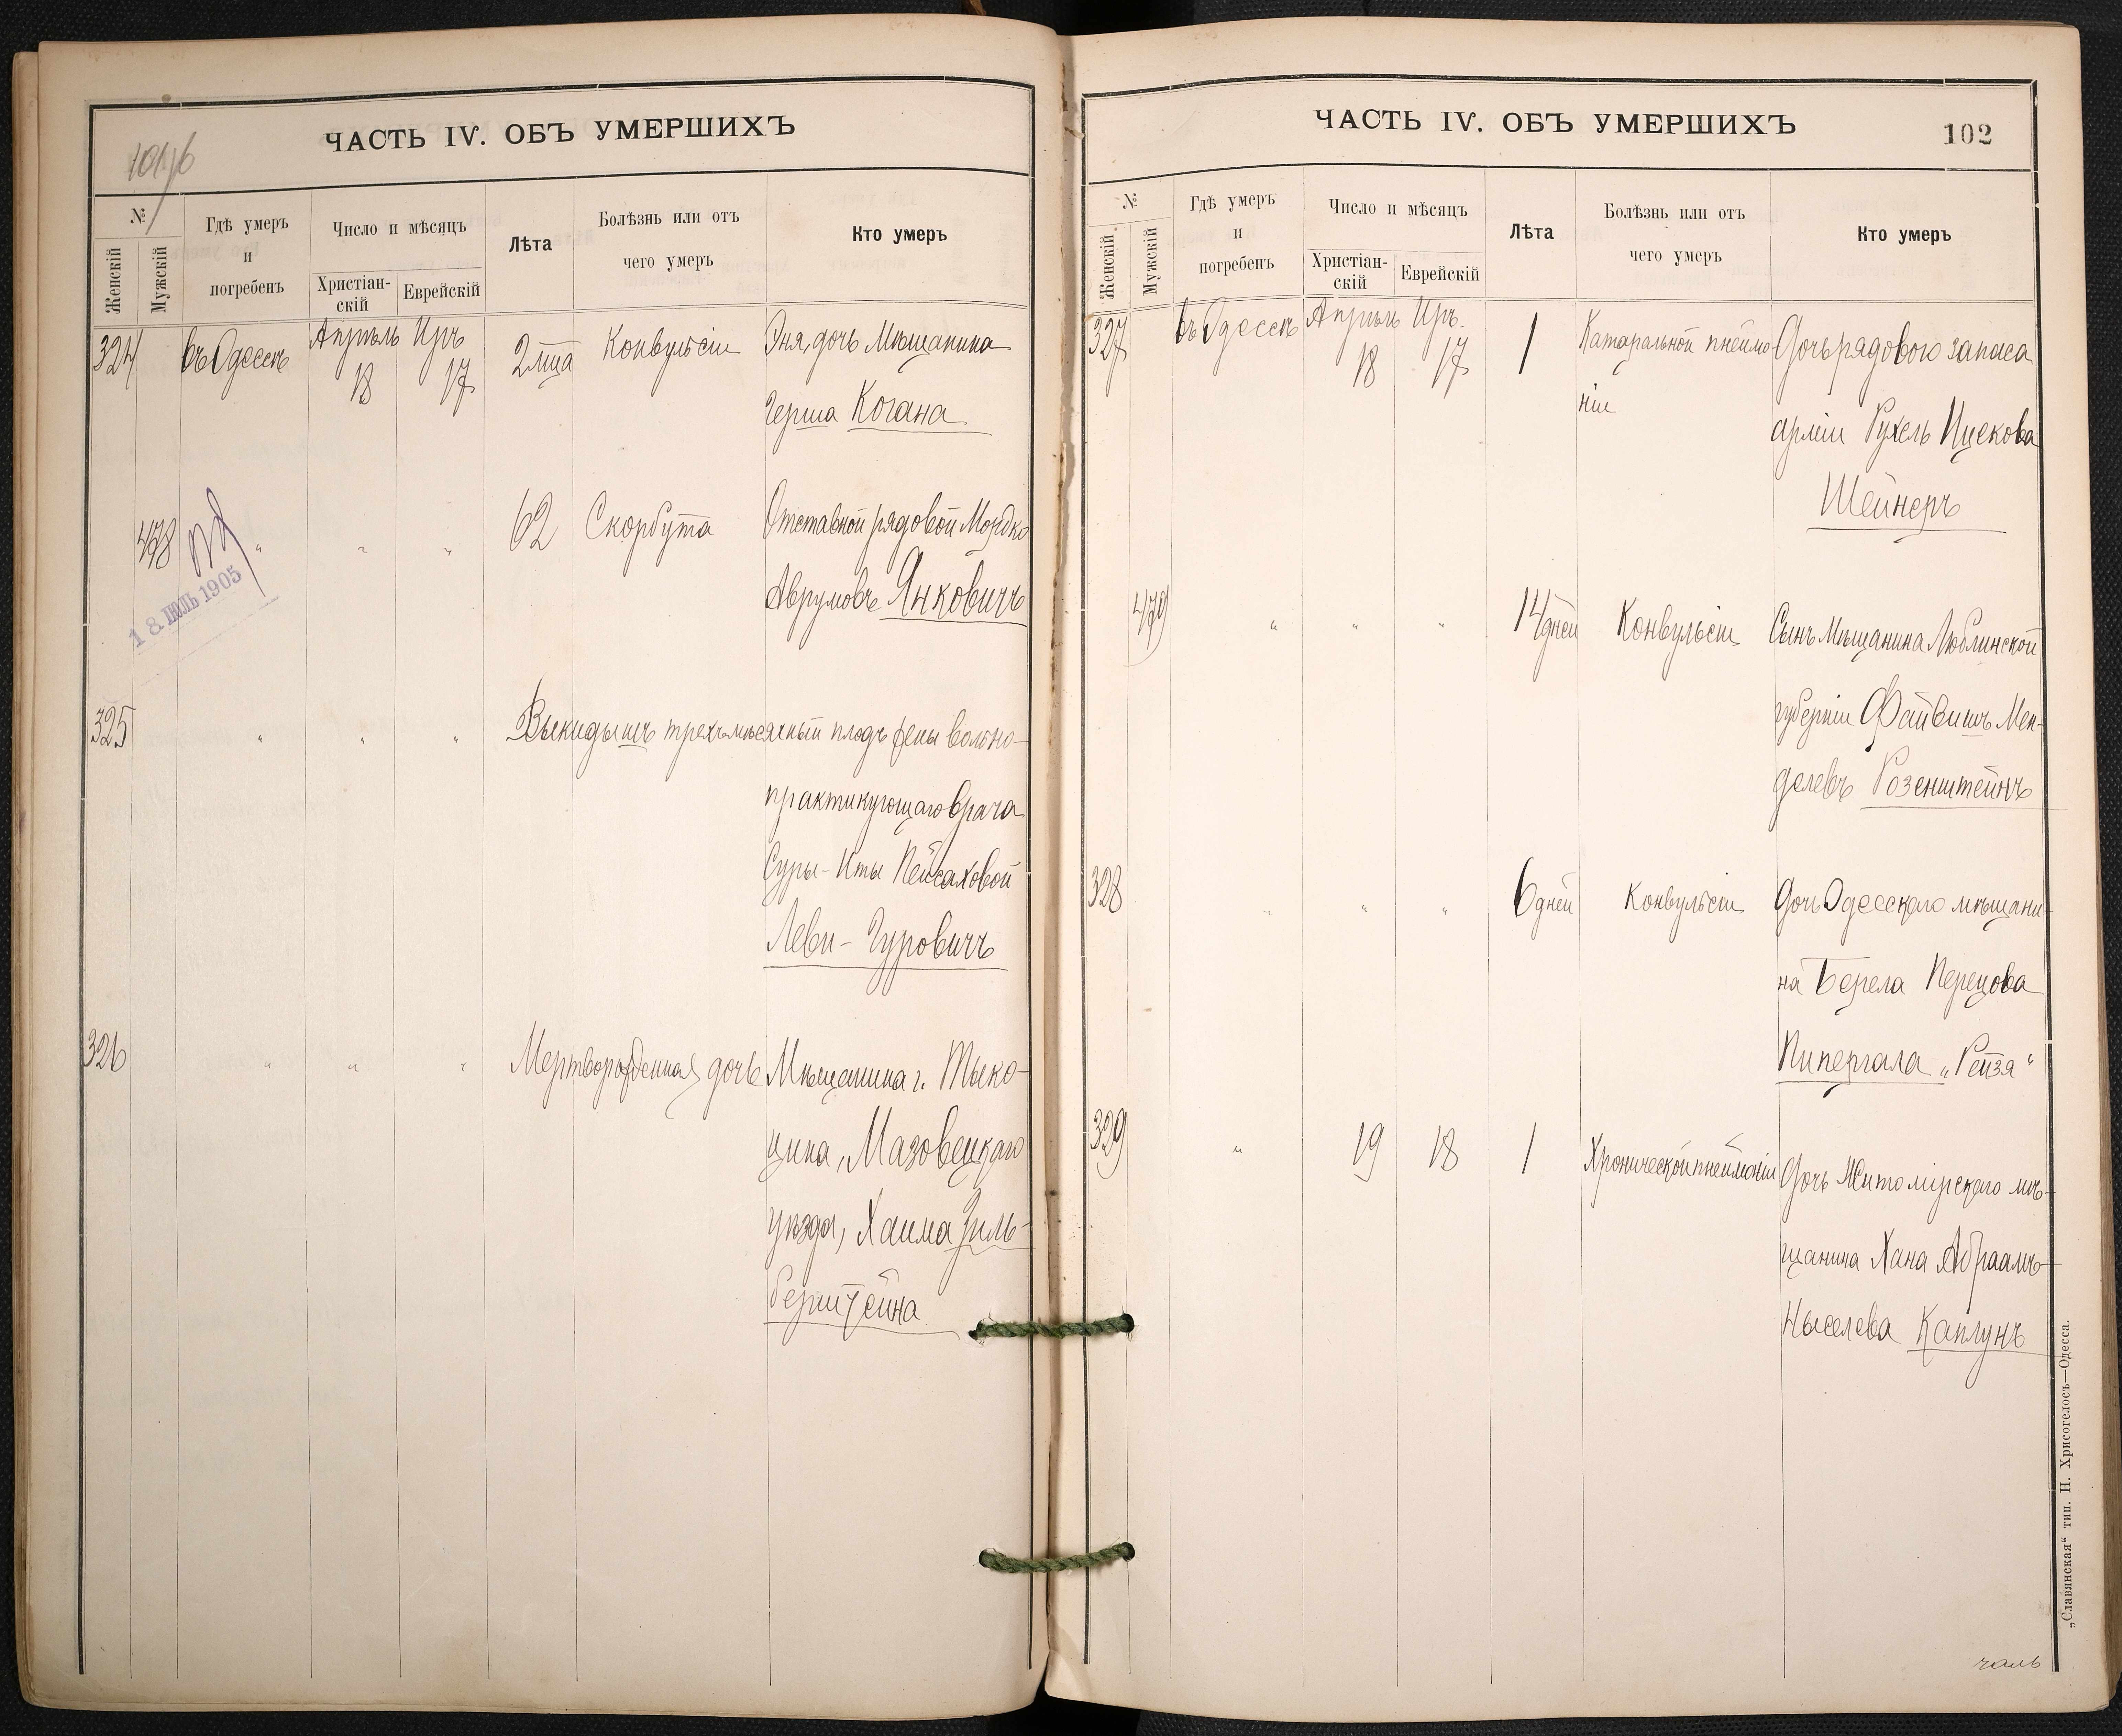 ЧАСТЬ IV. ОБЪ УМЕРШИХЪ
№
Женскій
Мужскій
Гдѣ умеръ
и
погребенъ
Число и мѣсяцъ
Христіан-
скій
Еврейскій
Лѣта
Болѣзнь или отъ
чего умеръ
Кто умеръ
324 въ Одессѣ Апрѣль Иръ 2 мца Конвульсіи Эня, дочь Мѣщанина
18 17
Герша Когана
478 " " " 62 Скорбута Отставной рядовой Мордко
Аврумовъ Янковичъ
18 ІЮЛЬ 1905
325 " " " Выкидышъ трехмѣсячный плодъ жены вольно-
практикующаго врача
Суры-Иты Пейсаховой
Леви-Гуровичъ
326 " " " Мертворожденная дочь Мѣщанина г. Тыко-
цина, Мазовецкаго
уѣзда, Хаима Зиль-
берштейна
ЧАСТЬ IV. ОБЪ УМЕРШИХЪ
102
№
Женскій
Мужскій
Гдѣ умеръ
и
погребенъ
Число и мѣсяцъ
Христіан-
скій
Еврейскій
Лѣта
Болѣзнь или отъ
чего умеръ
Кто умеръ
327 въ Одессѣ Апрѣль Иръ 1 Катаральной пнеймо Дочь рядового запаса
18 17
ніи
арміи Рухель Ицекова
Шейнеръ
479 " " " 14 дней Конвульсіи Сынъ Мѣщанина Люблинской
губерніи Файвишъ Мен-
делевъ Розенштейнъ
328 " " " 6 дней Конвульсіи Дочь Одесскаго мѣщани-
на Берела Перецова
Пипергала „Рейзя“
329 " 19 18 1 Хронической пнеймоніи Дочь Житомірскаго мѣ-
щанина Хана Абраамъ-
Кыселева Каплунъ
„Славянская“ тип. Н. Хрисогелосъ—Одесса.